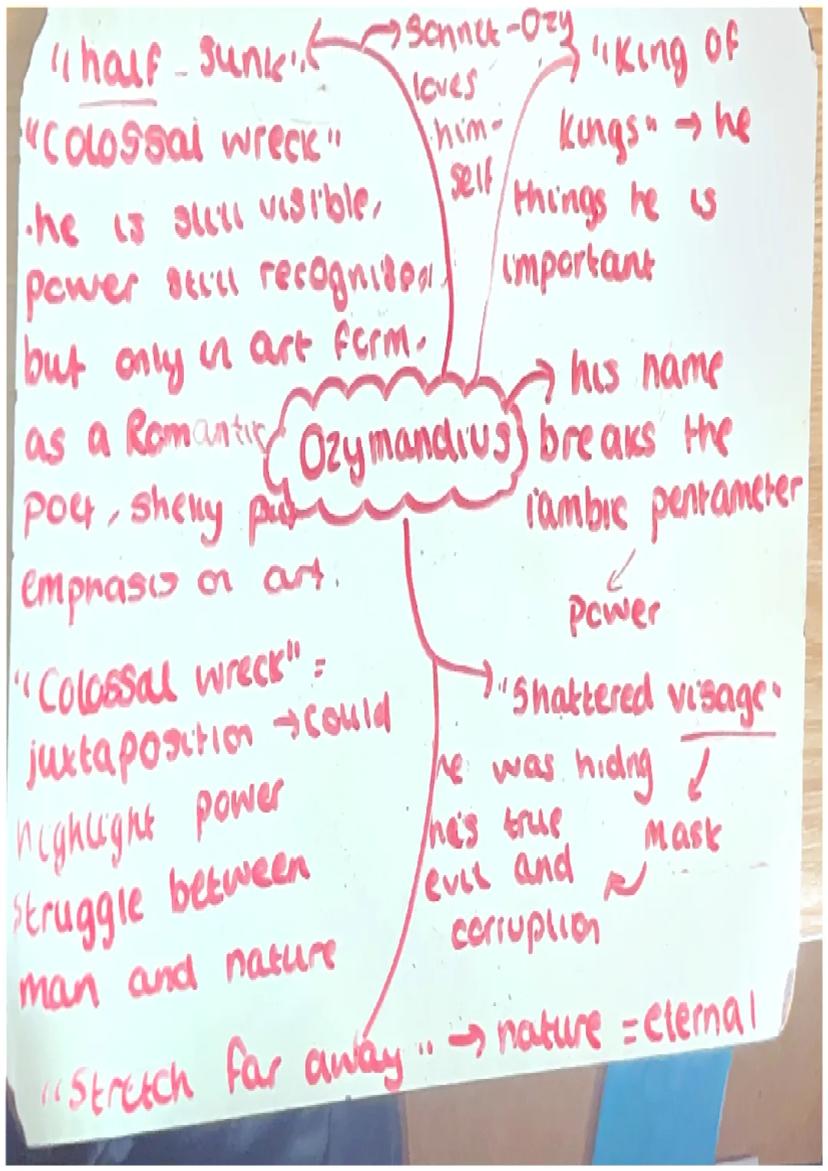 "half-sunk"
"Colossal wreck"
.he is still visible,
power still recognised
but only in art form.
as a Romantic
poet, shelly put
emphasis on art.
"Colossal wreck" =
juxtaposition → could
highlight power
struggle between
man and nature
→ Sonnet-Ozy
loves
him-
self
"King of
Kings" → he
things he is
important
Ozymandius
→ his name
breaks the
iambic pentameter
power
"Shattered visage"
he was hiding
he's true
evil and
corruption
mask
"Stretch far away" → nature = eternal